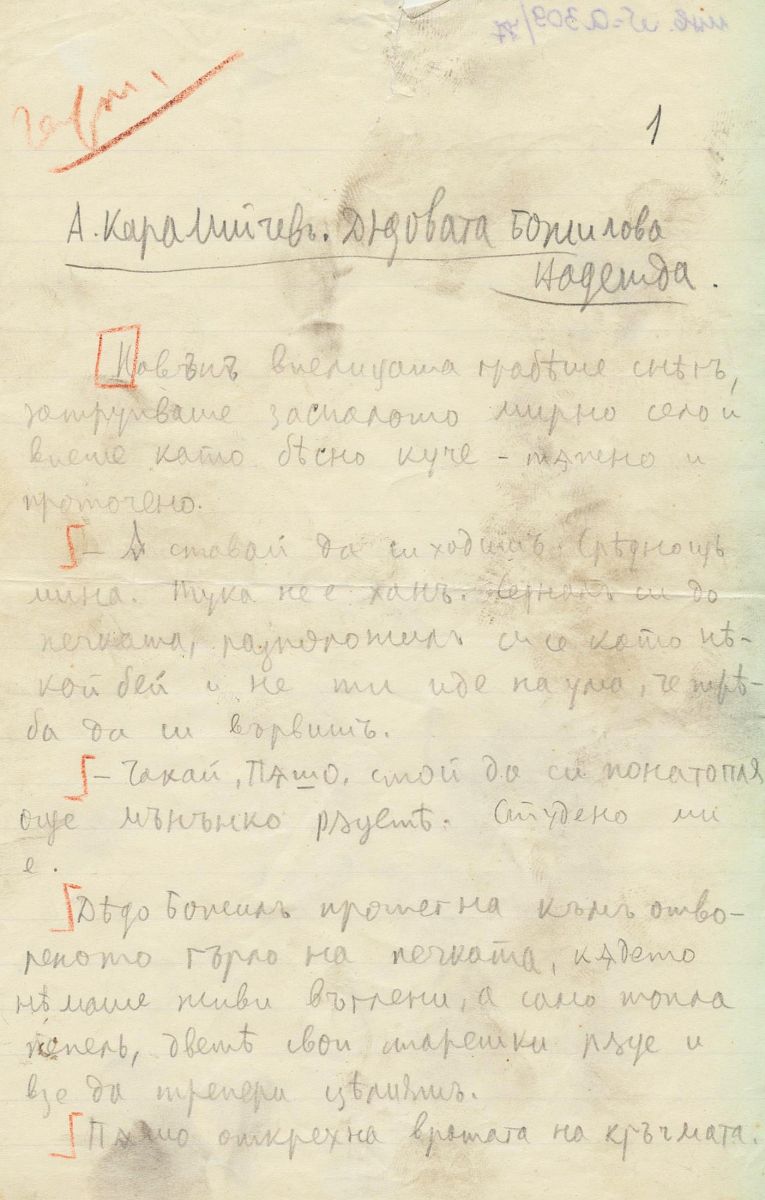 инв. № а 309/77
1
А. Каралийчевъ. Дѣдовата Божилова
надежда.
Навънъ виелицата грабѣше снѣгъ,
затрупваше заспалото мирно село и
виеше като бѣсно куче – тѫжно и
проточено.
– А ставай да си ходишъ. Срѣднощь
мина. Тука не е ханъ. Седналъ си до
печката, разположилъ си се като нѣ-
кой бей и не ти иде на ума, че трѣ-
ба да си вървишъ.
– Чакай, Пѫшо, стой да си понатопля
още мънънко рѫцетѣ. Студено ми
е.
Дѣдо Божилъ протегна къмъ отво-
реното гърло на печката, кѫдето
нѣмаше живи въглени, а само топла
пепель, дветѣ свои старешки рѫце и
взе да трепери цѣлиятъ.
Пѫшо открехна вратата на кръчмата.